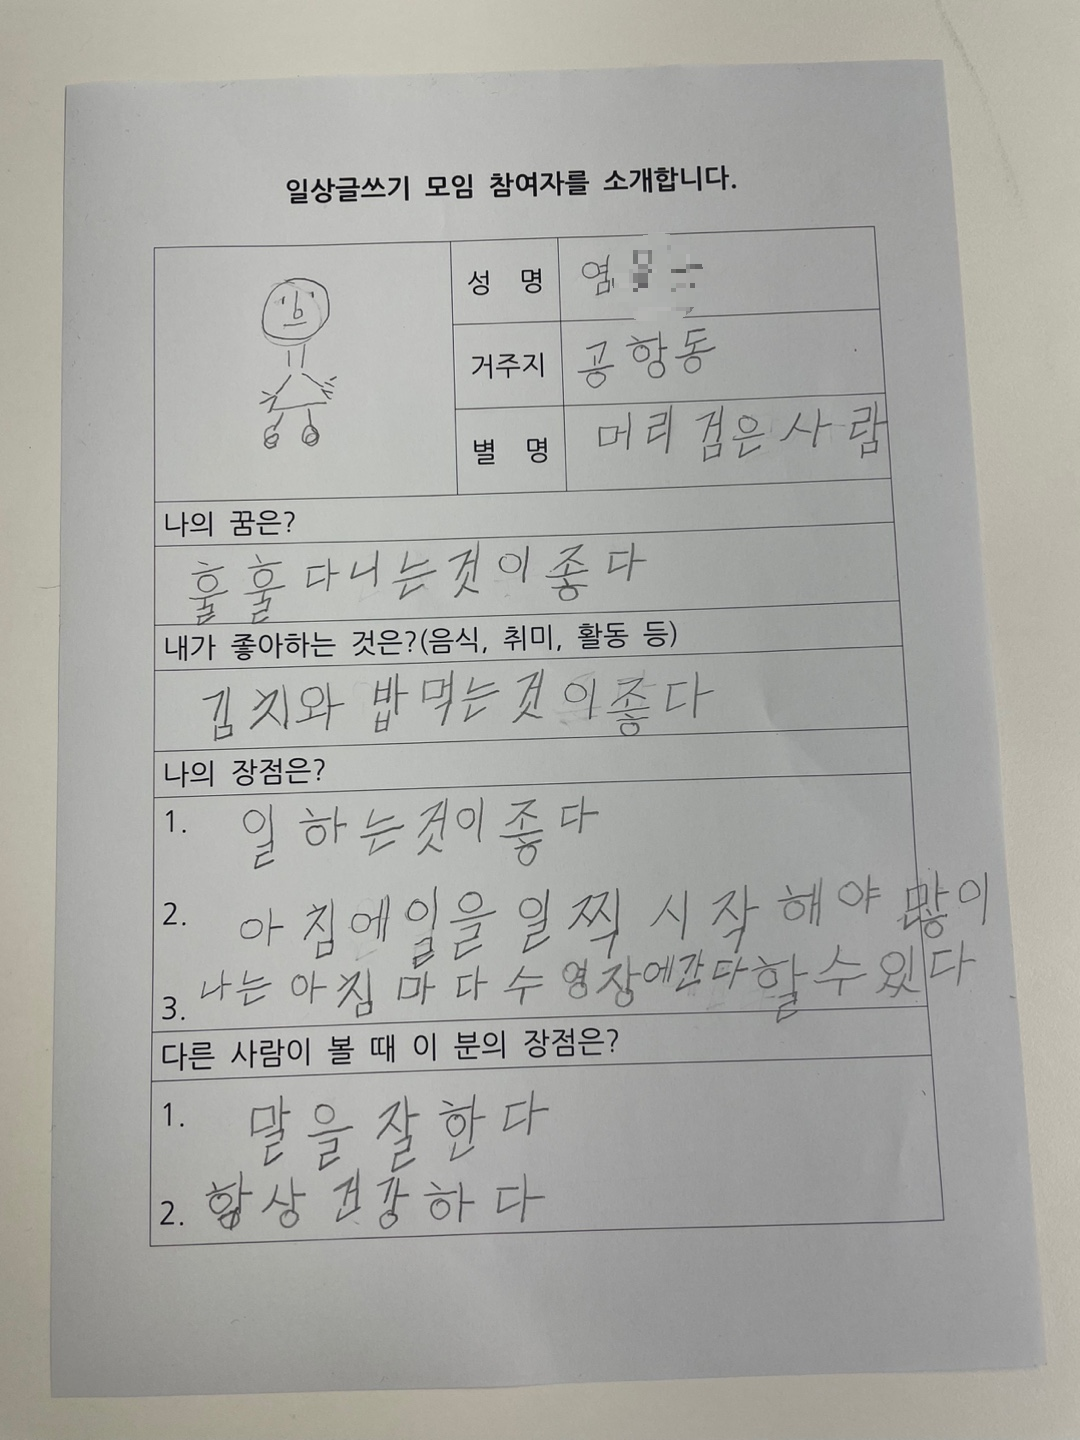 일상글쓰기 모임 참여자를 소개합니다.
성 명 염
거주지 공항동
별 명 머리 검은 사람
나의 꿈은?
훌훌 다니는것이 좋다
내가 좋아하는 것은?(음식, 취미, 활동 등)
김치와 밥먹는것이좋다
나의 장점은?
1. 일하는것이 좋다
2. 아침에일을 일찍 시작해야 많이
할수있다
3. 나는 아침마다 수영장에간다
다른 사람이 볼 때 이 분의 장점은?
1. 말을 잘한다
2. 항상 건강하다